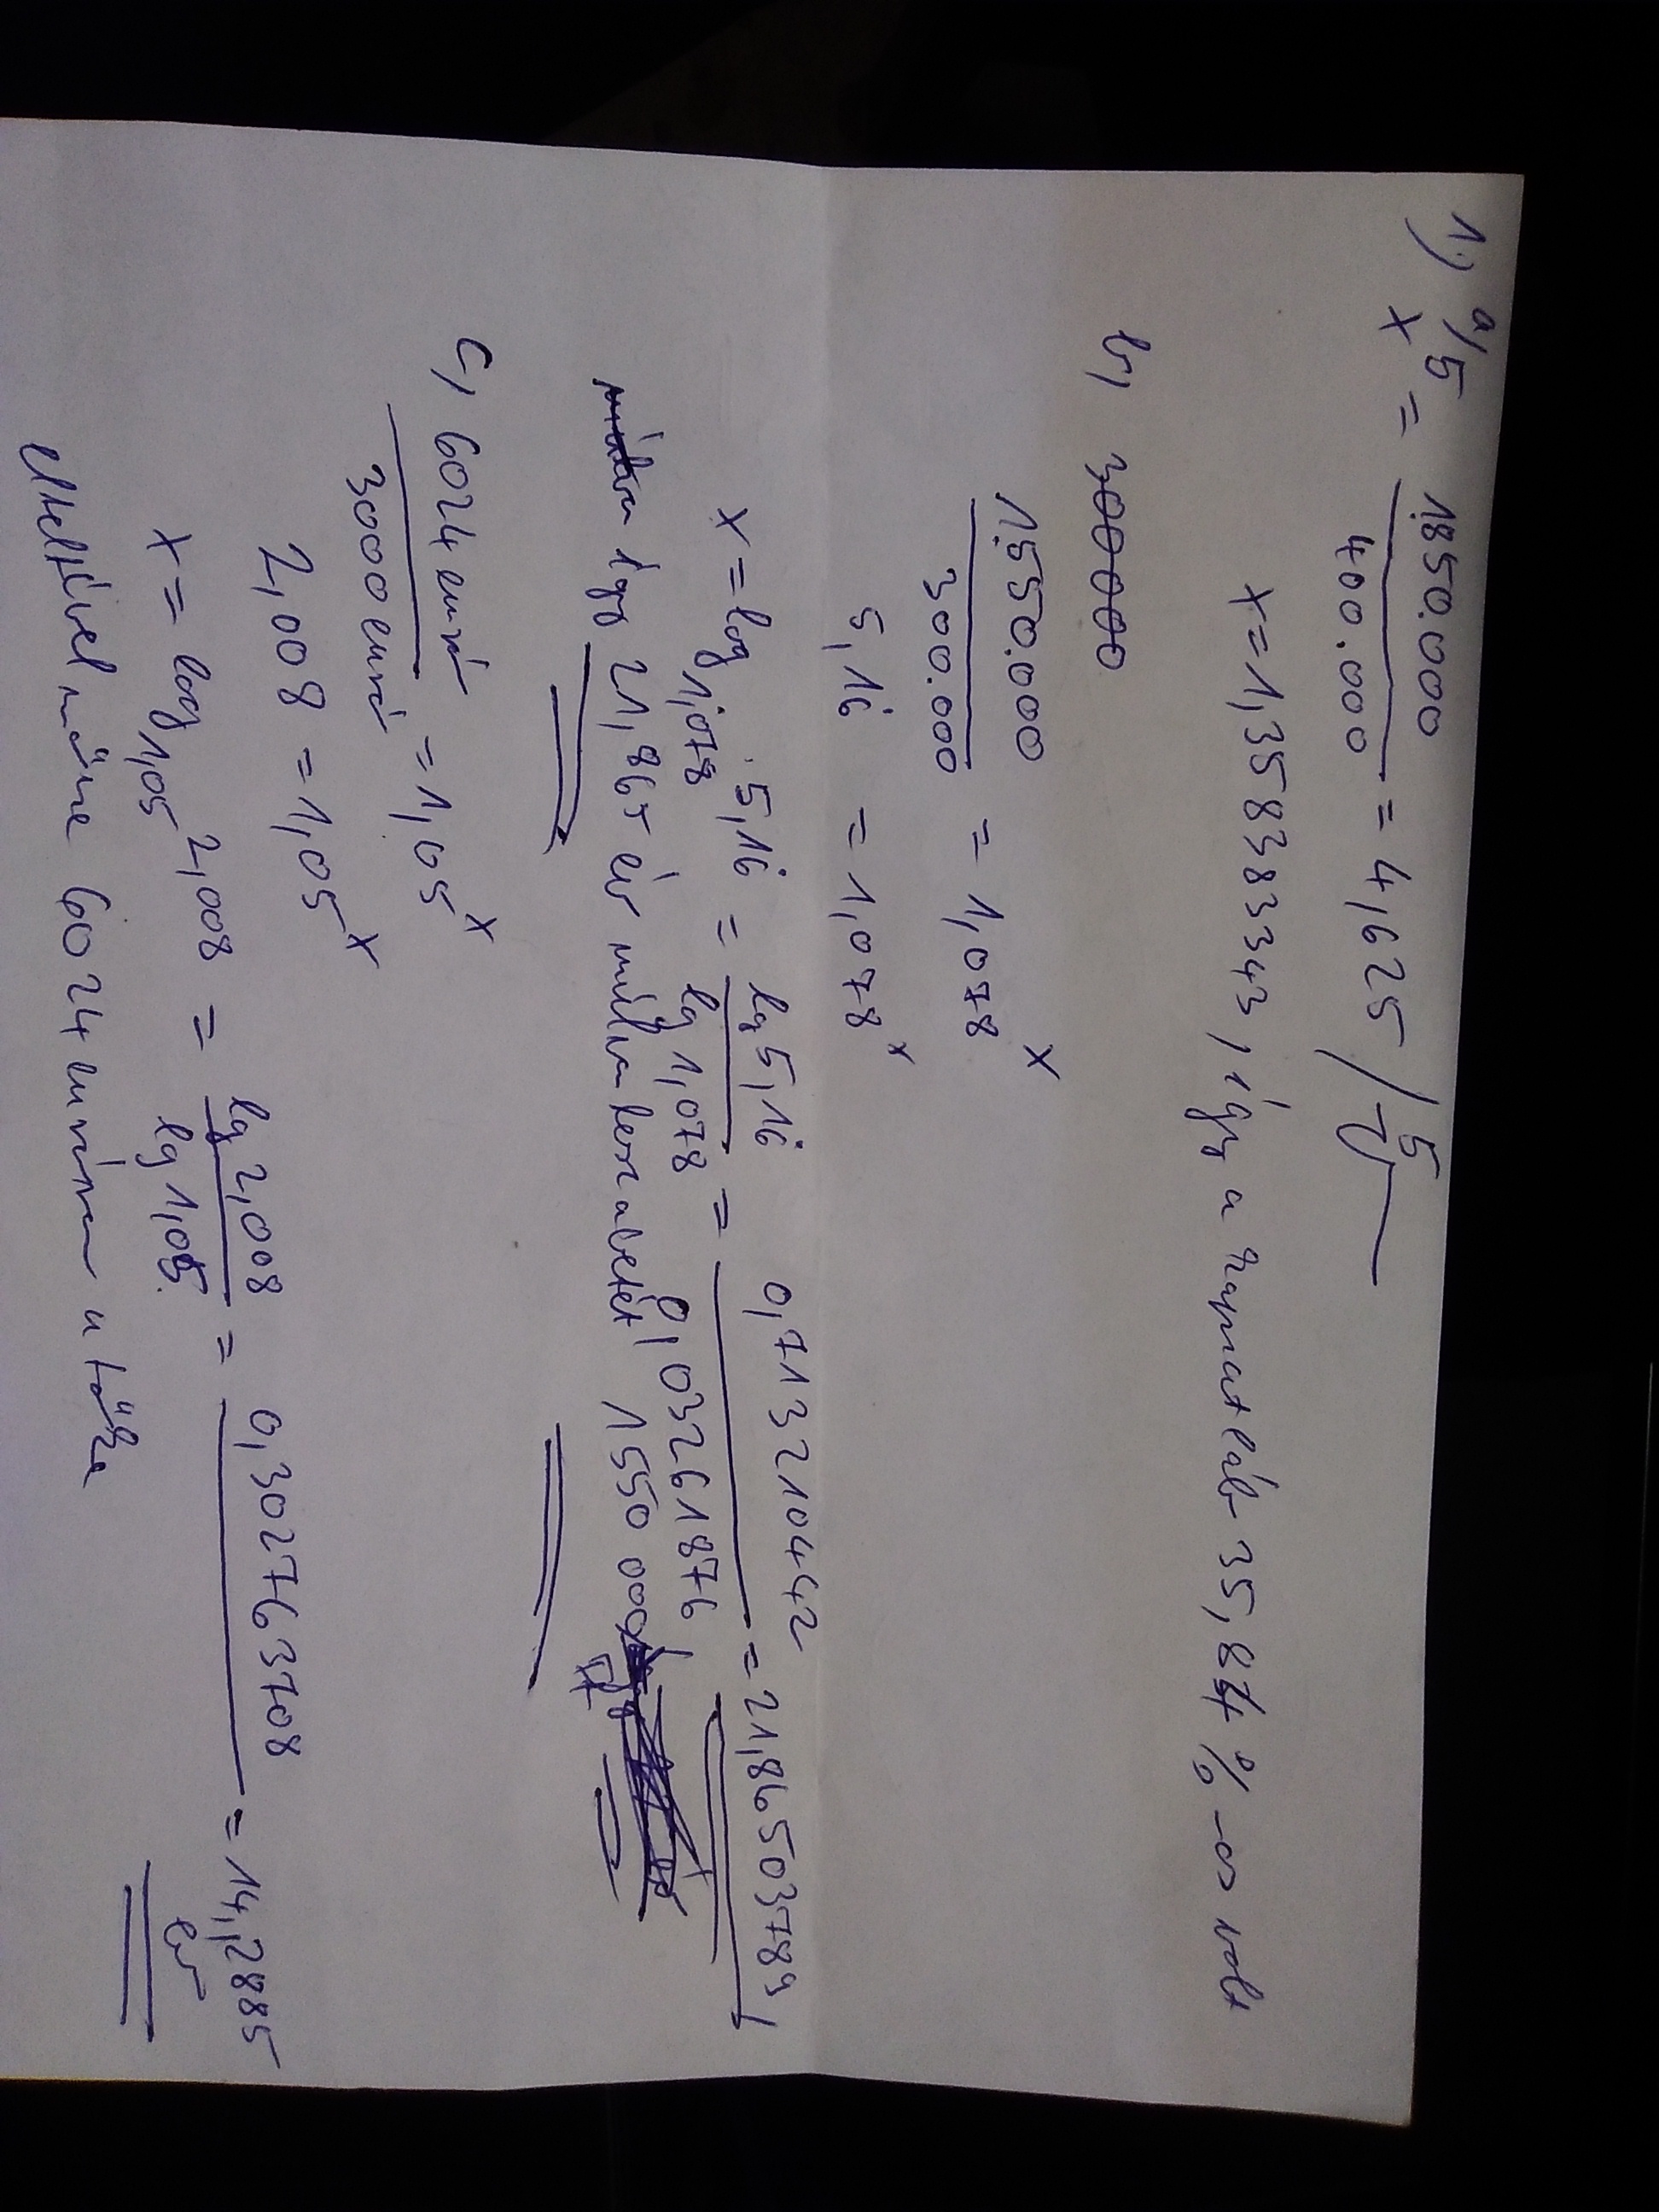 1,) a, x⁵ = 1.850.000 / 400.000 = 4,625 / ⁵√
x = 1,358383343, így a kamatláb 35,84 % -os volt
b, 30000
1.550.000 / 300.000 = 1,078ˣ
5,16̇ = 1,078ˣ
x = log 1,078 5,16̇ = lg 5,16̇ / lg 1,078 = 0,713210442 / 0,03261876 = 21,86503789
így 21,865 év múlva lesz a betét 1550 000
c, 6024 euró / 3000 euró = 1,05ˣ
2,008 = 1,05ˣ
x = log 1,05 2,008 = lg 2,008 / lg 1,05 = 0,302763708 = 14,2885 év
elteltével nőne 6024 euróra a tőke